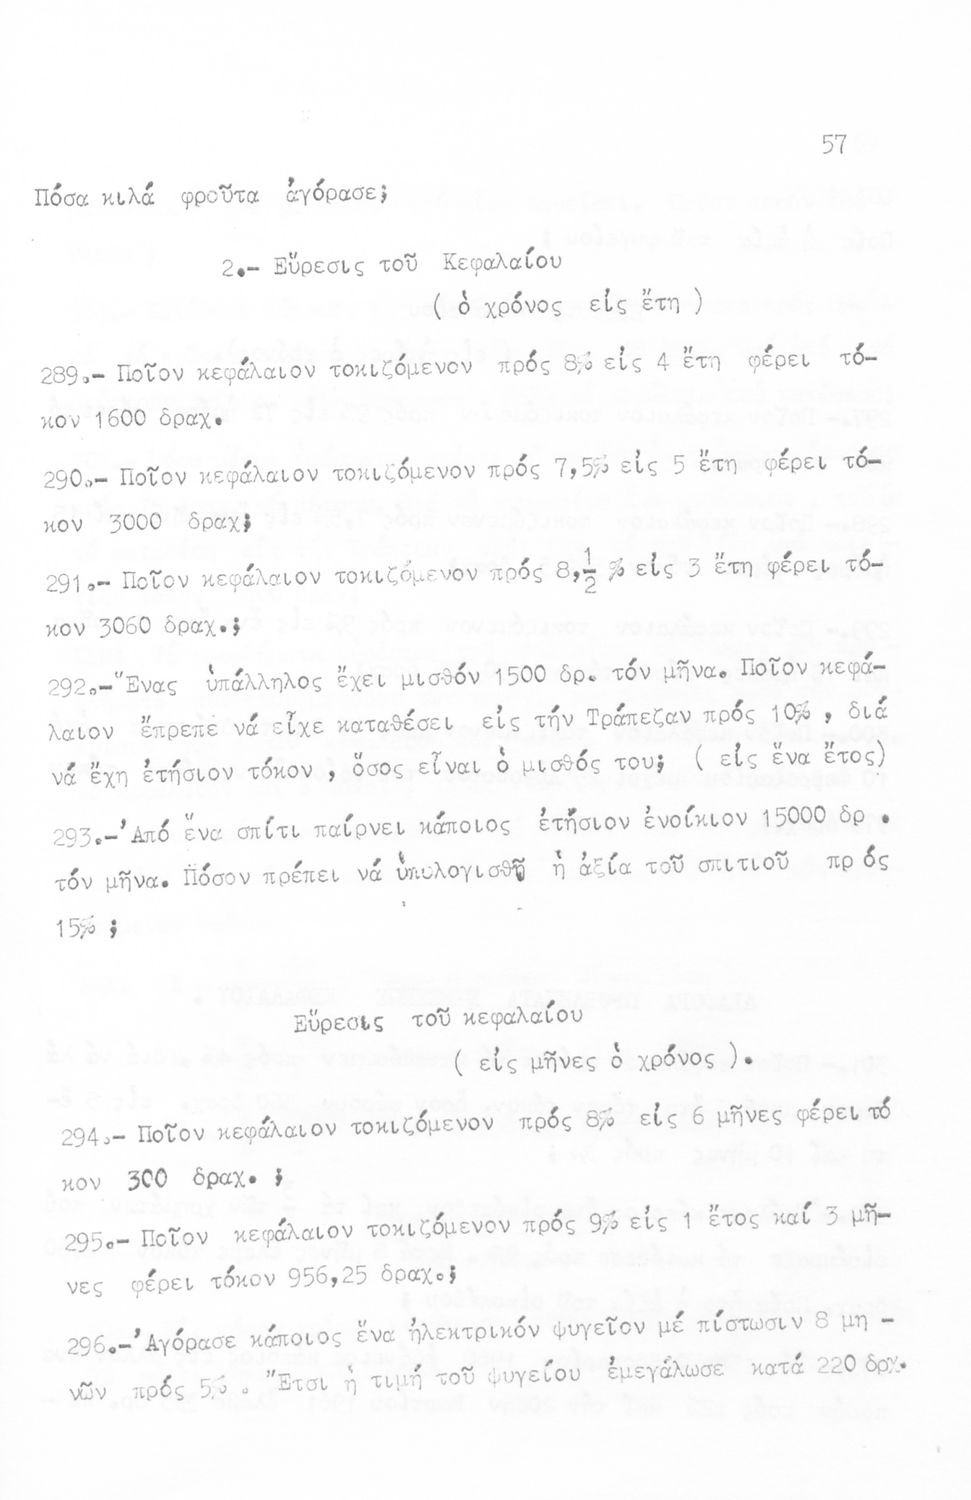 57
Πόσα κιλά φροῦτα ἀγόρασε;
2.- Εὕρεσις τοῦ Κεφαλαίου
( ὁ χρόνος εἰς ἔτη )
289.- Ποῖον κεφάλαιον τοκιζόμενον πρός 8% εἰς 4 ἔτη φέρει τό-
κον 1600 δραχ.
290.- Ποῖον κεφάλαιον τοκιζόμενον πρός 7,5% εἰς 5 ἔτη φέρει τό-
κον 3000 δραχ;
291.- Ποῖον κεφάλαιον τοκιζόμενον πρός 8,½ % εἰς 3 ἔτη φέρει τό-
κον 3060 δραχ.;
292.- Ἕνας ὑπάλληλος ἔχει μισθόν 1500 δρ. τόν μῆνα. Ποῖον κεφά-
λαιον ἔπρεπε νά εἶχε καταθέσει εἰς τήν Τράπεζαν πρός 10% , διά
νά ἔχη ἐτήσιον τόκον , ὅσος εἶναι ὁ μισθός του; ( εἰς ἕνα ἔτος)
293.-Ἀπό ἕνα σπίτι παίρνει κάποιος ἐτήσιον ἐνοίκιον 15000 δρ .
τόν μῆνα. Πόσον πρέπει νά ὑπολογισθῇ ἡ ἀξία τοῦ σπιτιοῦ πρ ός
15% ;
Εὕρεσις τοῦ κεφαλαίου
( εἰς μῆνες ὁ χρόνος ).
294.- Ποῖον κεφάλαιον τοκιζόμενον πρός 8% εἰς 6 μῆνες φέρει τό
κον 300 δραχ. ;
295.- Ποῖον κεφάλαιον τοκιζόμενον πρός 9% εἰς 1 ἔτος καί 3 μῆ-
νες φέρει τόκον 956,25 δραχ.;
296.-Ἀγόρασε κάποιος ἕνα ἠλεκτρικόν ψυγεῖον μέ πίστωσιν 8 μη -
νῶν πρός 5% . Ἔτσι ἡ τιμή τοῦ ψυγείου ἐμεγάλωσε κατά 220 δρχ.